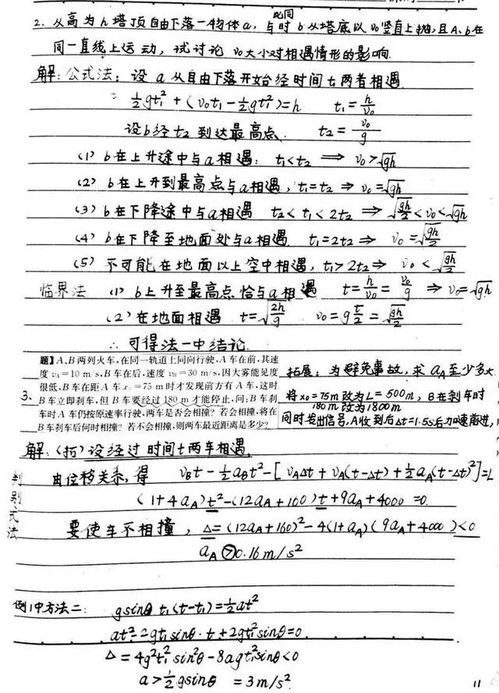 此同
2、从高为h塔顶自由下落一物体a,与时b从塔底以v₀竖直上抛,且A、b在
同一直线上运动,试讨论 v₀大小对相遇情形的影响.
解:公式法:设a从自由下落开始经时间t₁两者相遇
½gt₁²+(v₀t₁-½gt₁²)=h t₁=h/v₀
设b经t₂到达最高点. t₂=v₀/g
(1) b在上升途中与a相遇: t₁<t₂ ⇒ v₀>√gh
(2) b在上升到最高点与a相遇, t₁=t₂ ⇒ v₀=√gh
(3) b在下降途中与a相遇 t₂<t₁<2t₂ ⇒ √(gh/2)<v₀<√gh
(4) b在下降至地面处与a相遇 t₁=2t₂ ⇒ v₀=√(gh/2)
(5) 不可能在地面以上空中相遇, t₁>2t₂ ⇒ v₀<√(gh/2)
临界法 (1) b上升至最高点恰与a相遇 t=h/v₀=v₀/g ⇒ v₀=√gh
(2) 在地面相遇 t=√(2h/g) v₀=g t/2=√(gh/2)
∴ 可得法一中结论.
3、
题】A、B两列火车,在同一轨道上同向行驶,A车在前,其速
度v_A=10 m/s,B车在后,速度v_B=30 m/s,因大雾能见度
很低,B车在距A车x₀=75 m时才发现前方有A车,这时
B车立即刹车,但B车要经过180 m才能停止,问:B车刹
车时A车仍按原速率行驶,两车是否会相撞?若会相撞,将在
B车刹车后何时相撞?若不会相撞,则两车最近距离是多少?
拓展:为避免事故,求a_A至少多大
将x₀=75m改为L=500m,B在刹车时
180m改为1800m
同时发出信号,A收到后Δt=1.5s后加速前进,
解:(析)设经过时间t两车相遇.
由位移关系,得 v_Bt-½a_Bt²-[v_AΔt+v_A(t-Δt)+½a_A(t-Δt)²]=L
(1+4a_A)t²-(12a_A+160)t+9a_A+4000=0.
判别式法
要使车不相撞, Δ=(12a_A+160)²-4(1+a_A)(9a_A+4000)<0
a_A>0.16m/s²
例1中方法二: gsinθ t₁(t-t₁)=½at²
at²-2gt₁sinθ·t+2gt₁²sinθ=0.
Δ=4g²t₁²sin²θ-8agt₁²sinθ<0
a>½gsinθ =3m/s²
11